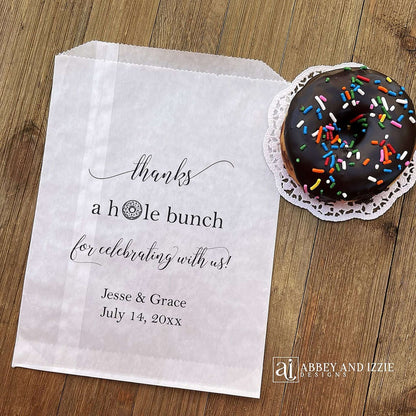 thanks
a hole bunch
for celebrating with us!
Jesse & Grace
July 14, 20xx
ai
ABBEY AND IZZIE
DESIGNS